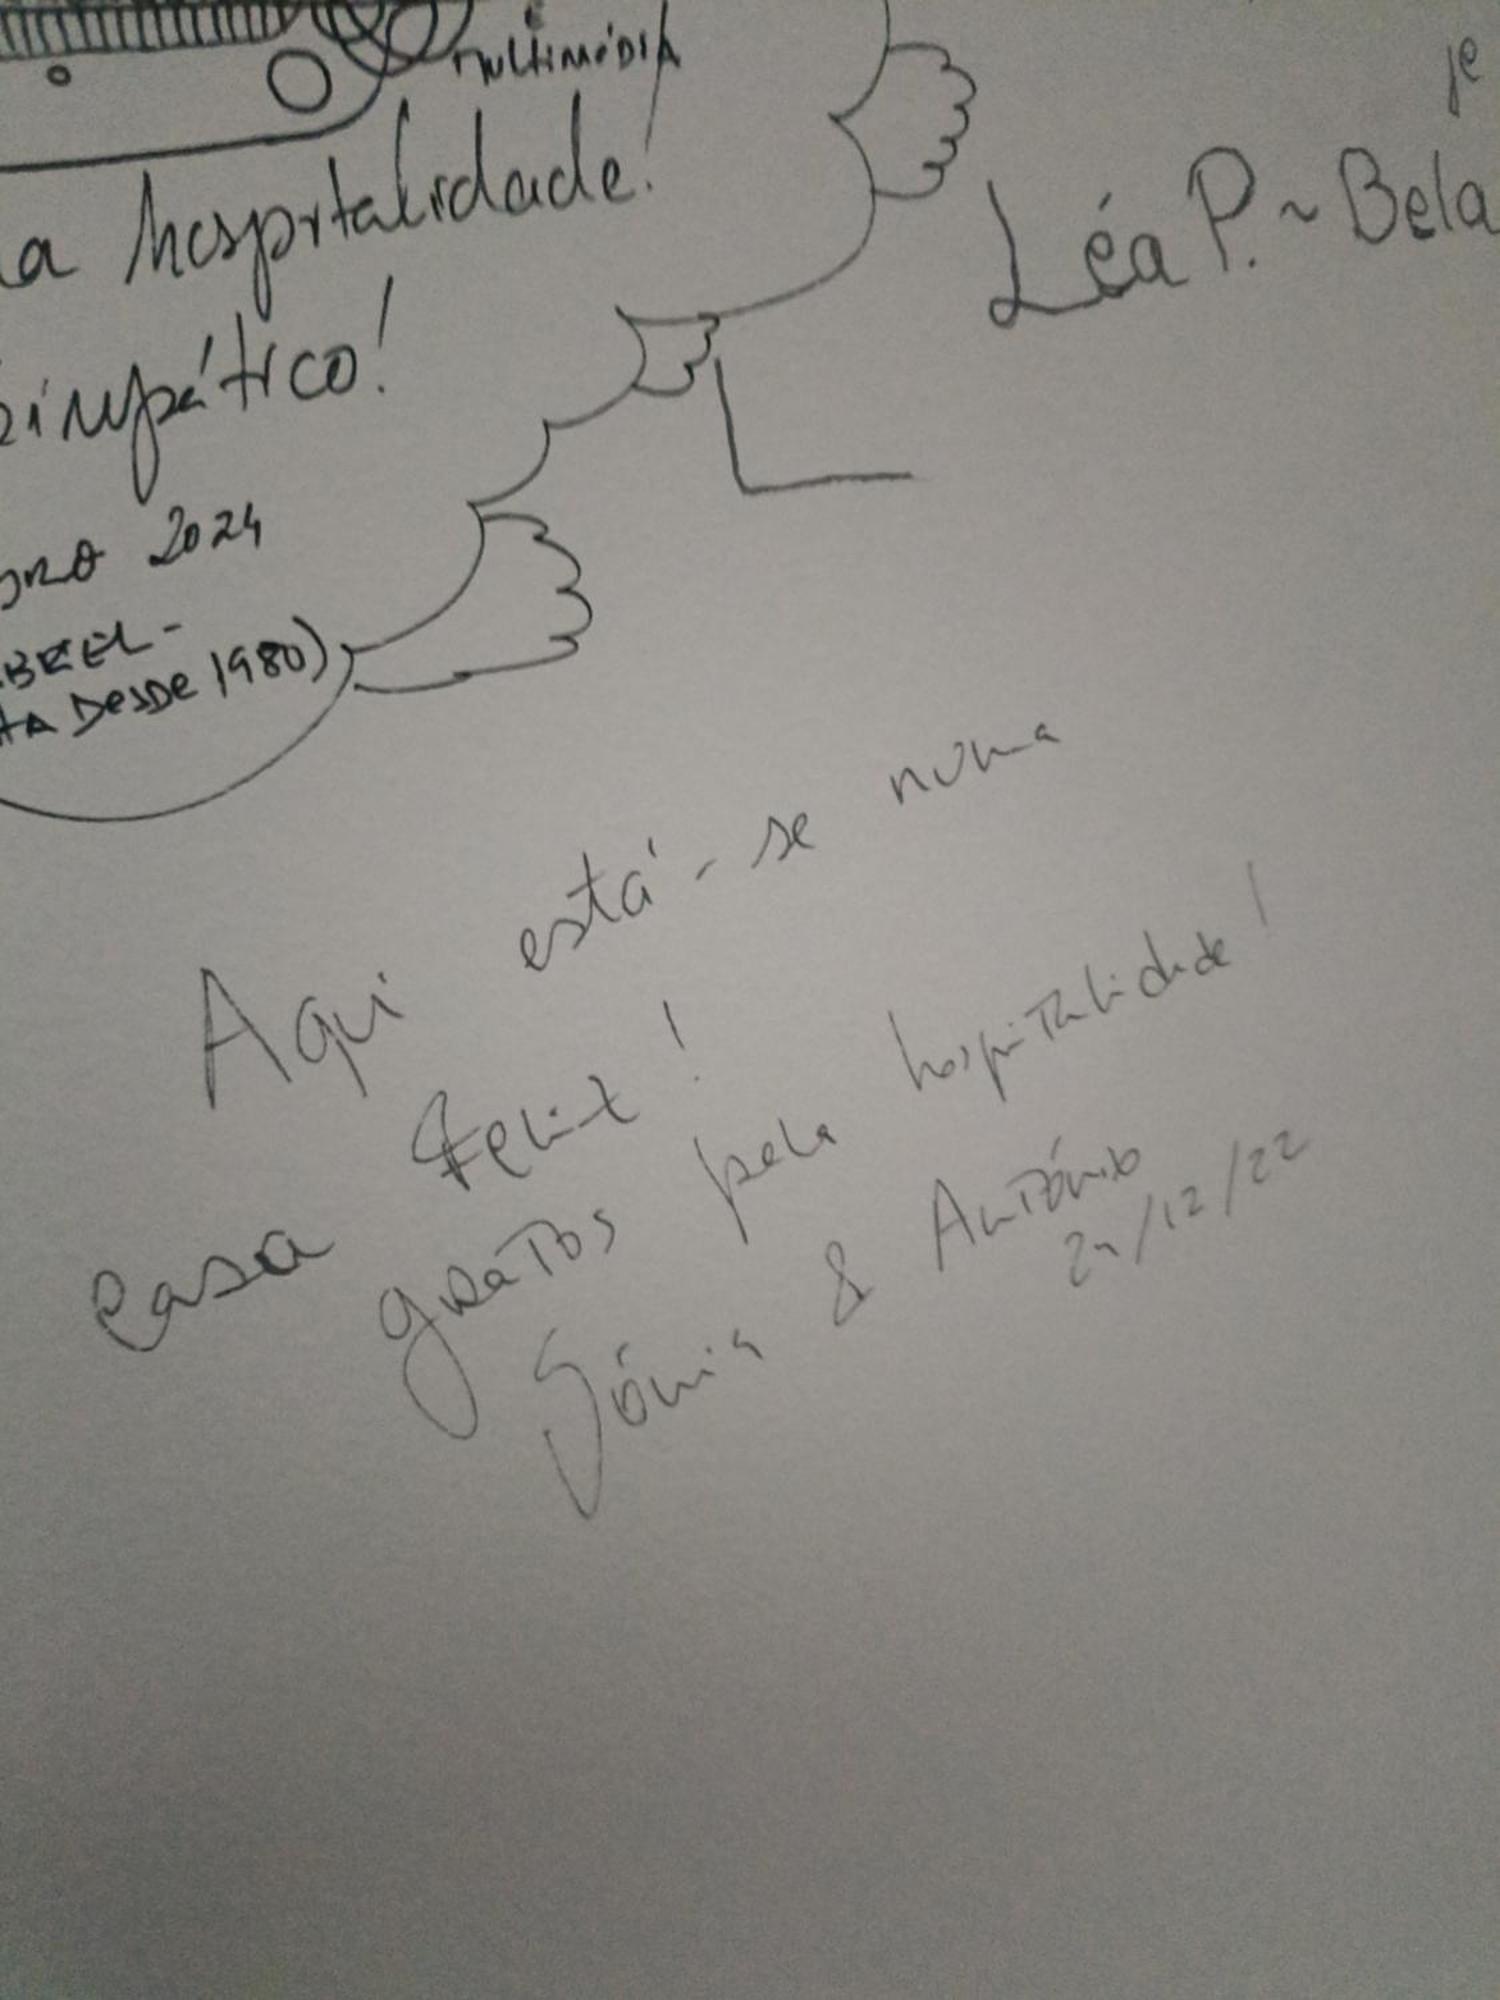 multimédia
a hospitalidade!
simpático!
2024
desde 1980)
Léa P. ~ Bela
Aqui está-se numa
Casa Feliz!
gratos pela hospitalidade!
Sónia & António
/12/22